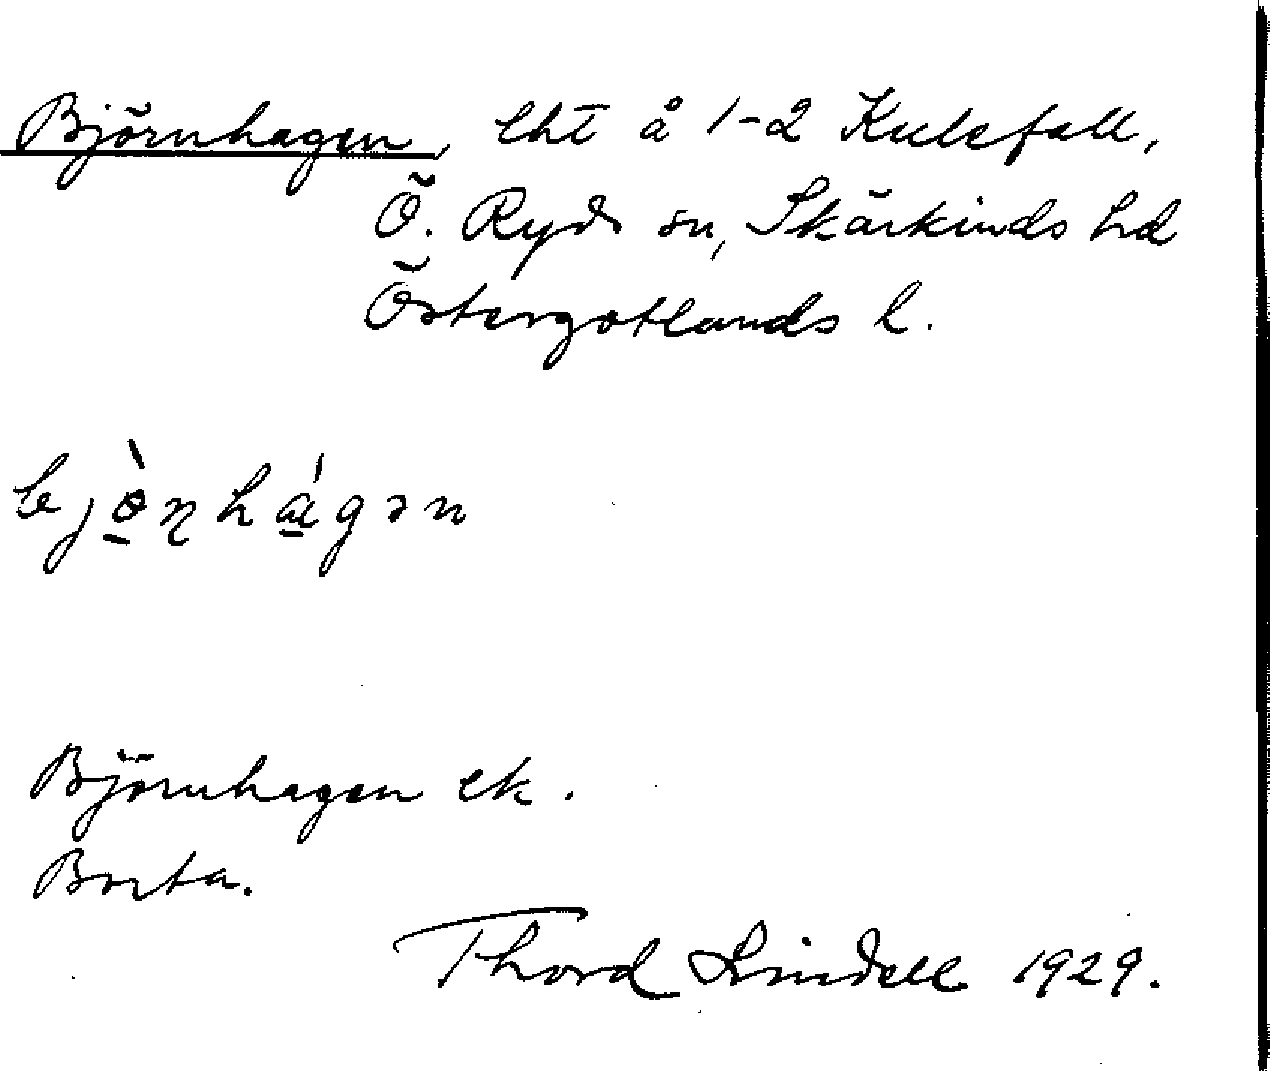 Björnhagen, lht å 1-2 Kulefall,
Ö. Ryds sn, Skärkinds hd
Östergötlands l.
bjò̱nhá̱gən
Björnhagen ek.
Borta.
Thord Lindell 1929.